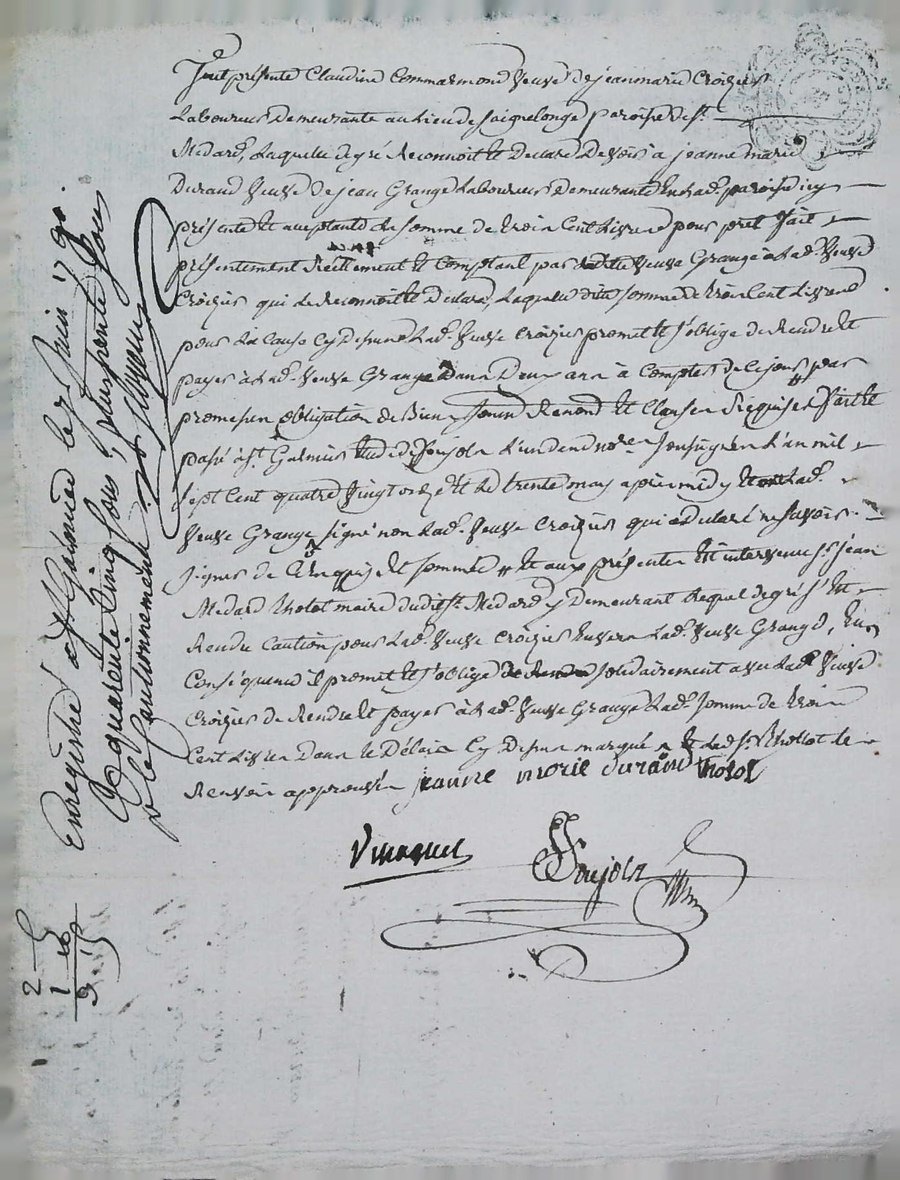 fut présente Claudine Commarmond veuve de jeanmarie Croizier
Laboureur demeurante au lieu de paroisse de st
Medard, Laquelle de gré Reconnoit et Declare Devoir à jeanne marie
Durand veuve de jean Grange Laboureur Demeurante en lad. paroisse icy
présente et acceptante La somme de trois Cent Livres pour prêt fait
présentement Réellement et Comptant par veuve Grange à Lad. veuve
Croizier qui Le Reconnoit et Declare, Laquelle ditte somme de trois Cent Livres
pour La Cause Cy dessus Lad. veuve Croizier promet et s'oblige de Rendre et
payer à Lad. veuve Grange Dans Deux ans à Compter de Ce jour par
promesses obligation de Biens soum. Renond. et Clauses Requises fait et
passé à st. Galmier Etude de Soujols L'un des nore. soussignés L'an mil
sept Cent quatre vingt onze et Le trente may après midy et Lad.
veuve Grange signé non Lad. veuve Croizier qui a déclaré ne savoir
signer de Ce Enquise et sommée et aux présentes Est intervenu sr. jean
Medard tholot maire dudit st. Medard y Demeurant Lequel de gré s'est
Rendu Caution pour Lad. veuve Croizier Envers Lad. veuve Grange, En
Conséquence il promet et s'oblige solidairement avec Lad. veuve
Croizier de Rendre et payer à Lad. veuve Grange Lad. somme de trois
Cent Livres Dans Le Délais Cy Dessus marqué et Led. sr. thollot le
Renvoi approuvé jeanne marie durand tholot
Soujols
Enregistré à st Galmier le juin 1791.
R quarente Cinq sous, plus trente sous
p le Cautionnement
2 5
1 10
3 15